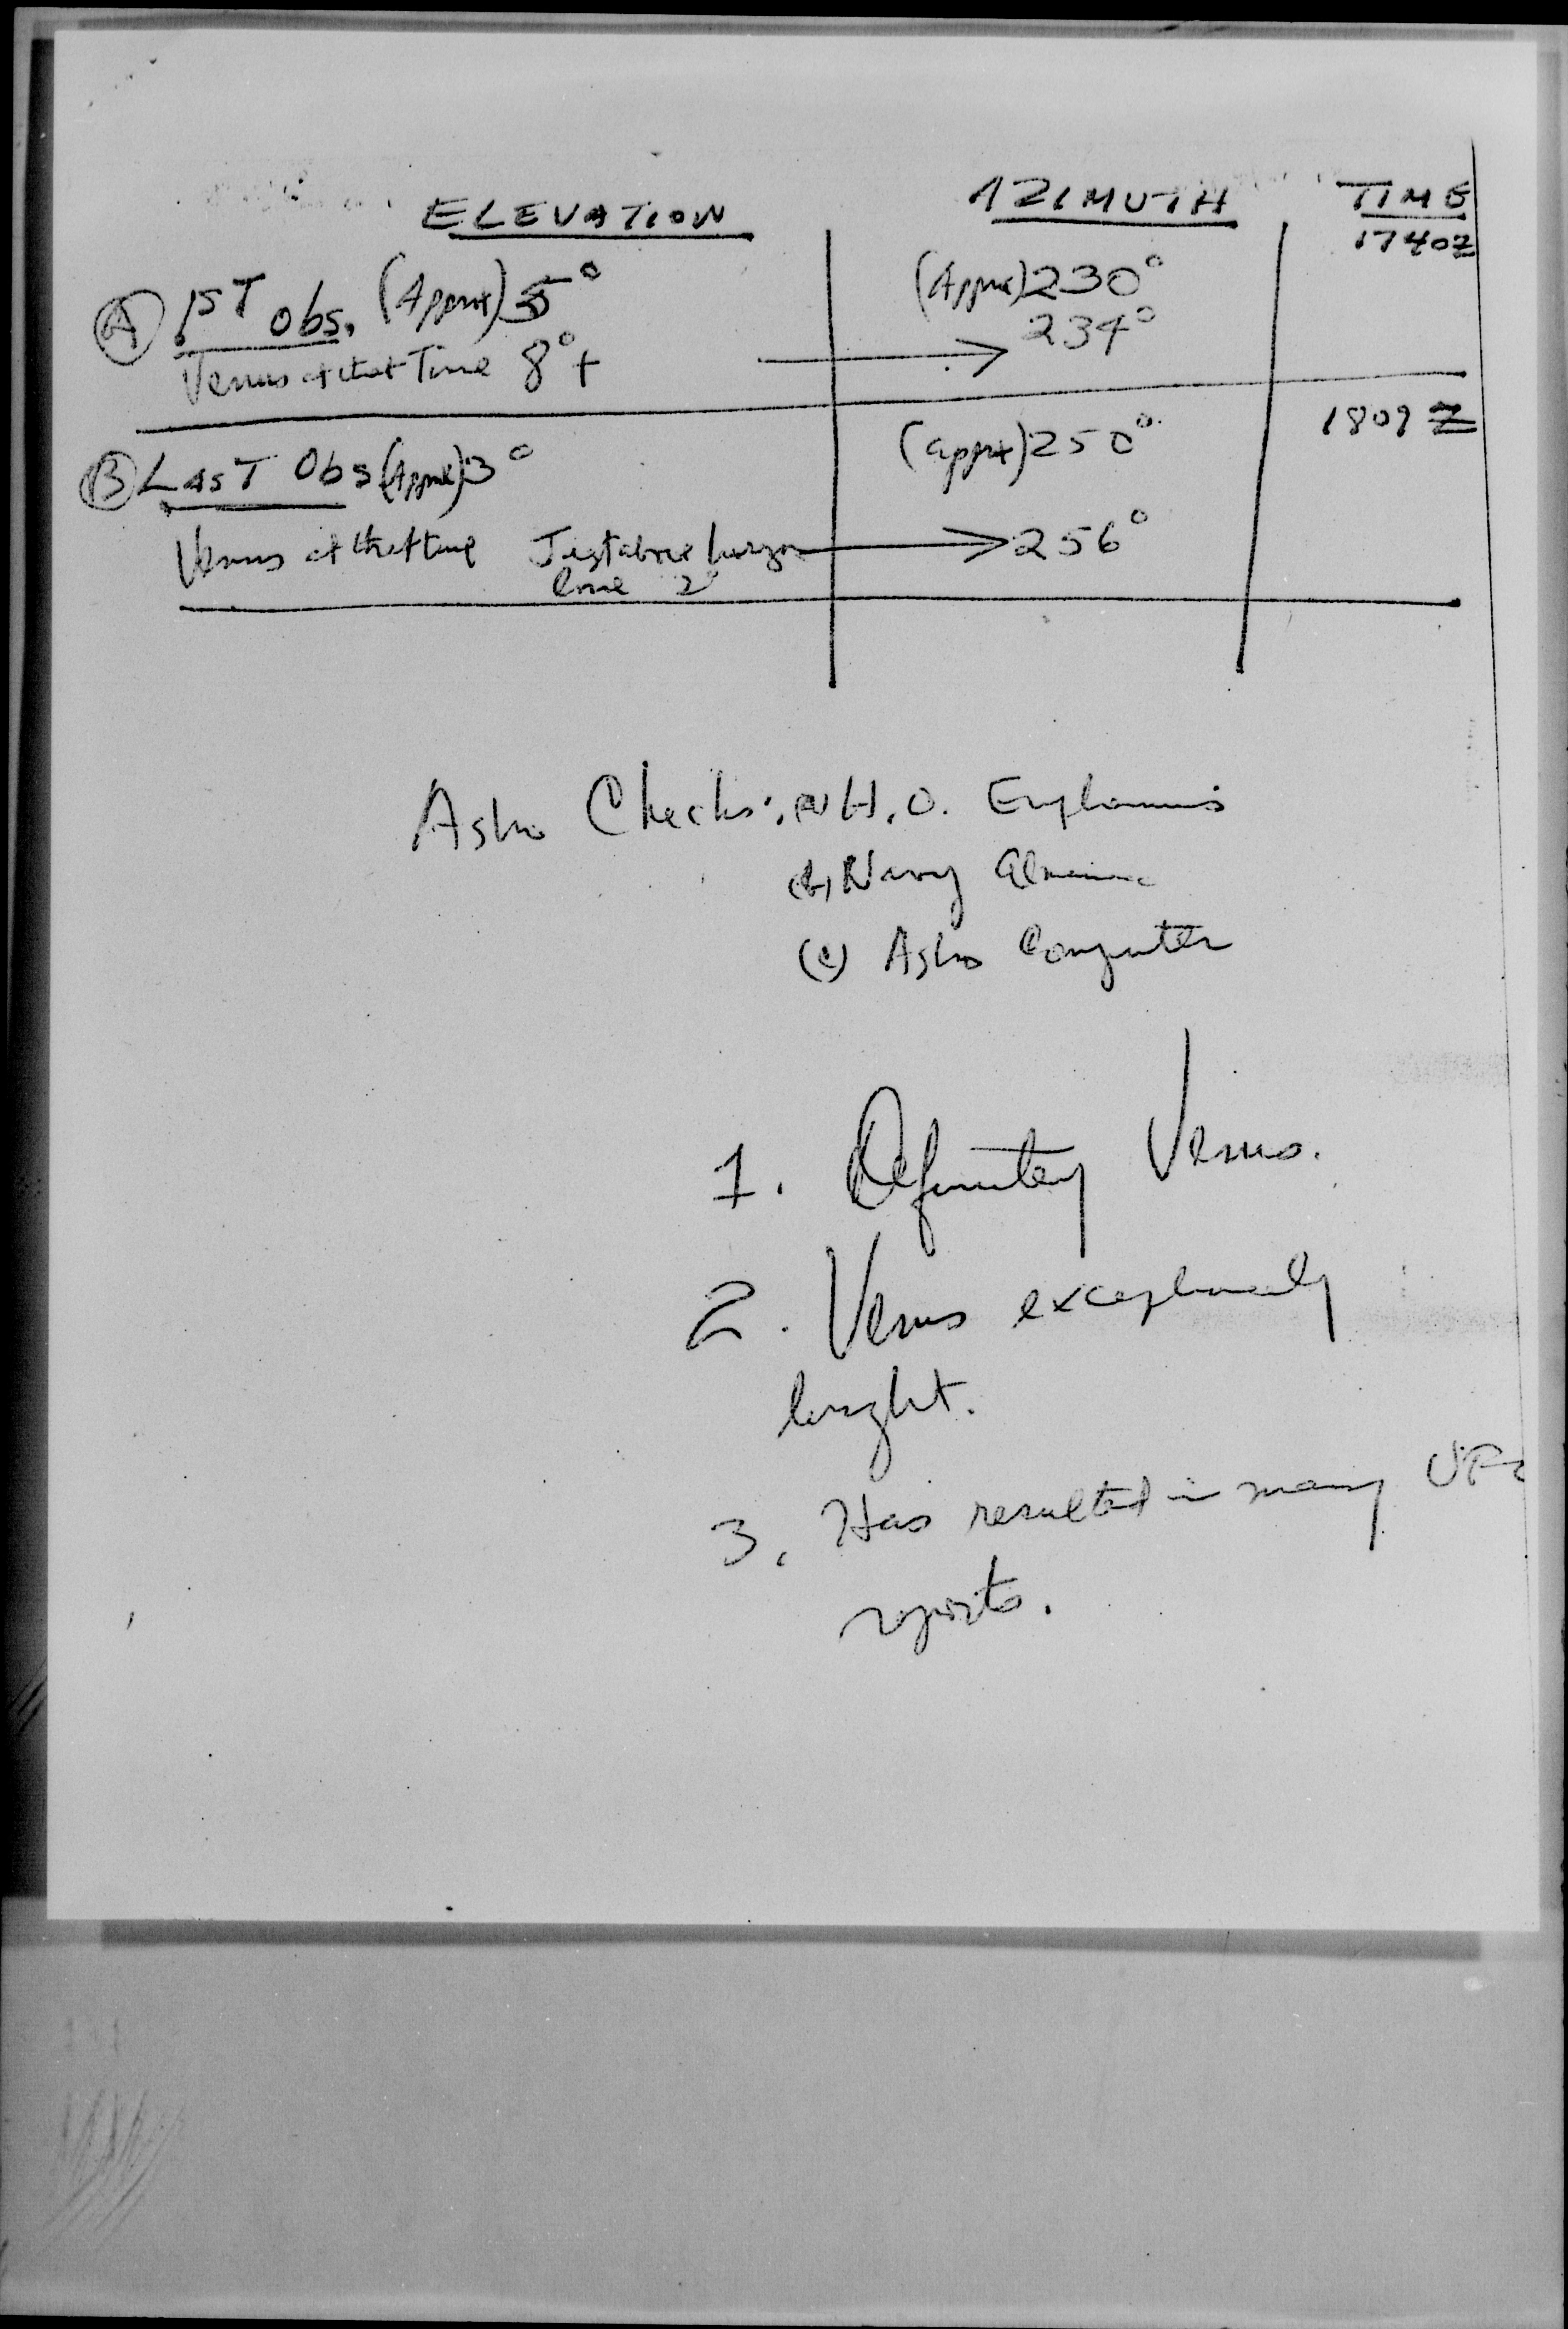 ELEVATION AZIMUTH TIME
1740Z
(A) 1ST obs. (Approx) 5° (Approx) 230°
234°
Venus at that Time 8°+ →
(B) LAST Obs (Approx) 3° (approx) 250° 1809 Z
Venus at that time Just above horizon → 256°
line 2°
Astro Checks: (a) H.O. Ephemeris
(b) Navy Almanac
(c) Astro Computer
1. Definitely Venus.
2. Venus exceptionally
bright.
3. Has resulted in many UFO
reports.